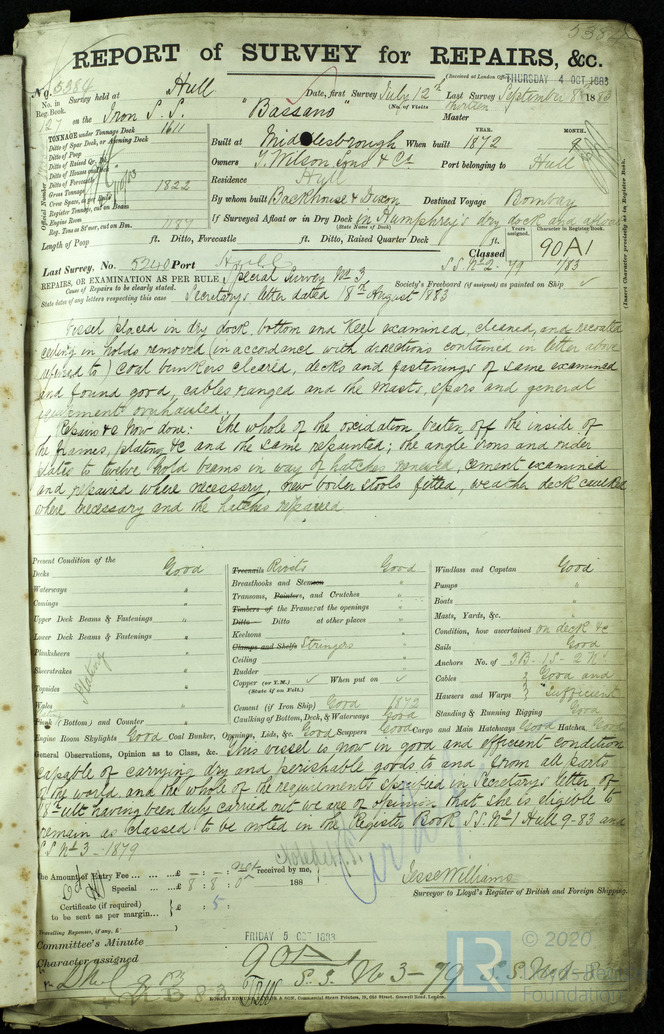 5384
REPORT of SURVEY for REPAIRS, &c.
(Received at London Office THURSDAY 4 OCT 1883
No. 5384
No. in Reg. Book. 127
Survey held at Hull
Date, first Survey July 12th
Last Survey September 8th 1883
(No. of Visits thirteen
on the Iron S.S. "Bassano"
Master
TONNAGE under Tonnage Deck 1611
Ditto of Spar Deck, or Awning Deck
Ditto of Poop
Ditto of Raised Qr. Dk.
Ditto of Houses on Deck
Ditto of Forecastle
Gross Tonnage 1822
Crew Space, as per Rule
Register Tonnage, cut on Beams
Engine Room
Reg. Tons as St'mer, cut on Bm. 1187
Official Number
Built at Middlesbrough When built YEAR. 1872 MONTH. 9
Owners T. Wilson Sons & Co Port belonging to Hull
Residence Hull
By whom built Backhouse & Dixon Destined Voyage Bombay
If Surveyed Afloat or in Dry Dock in Humphrey's dry dock and afloat
(State Name of Dock)
Length of Poop ft. Ditto, Forecastle ft. Ditto, Raised Quarter Deck ft.
Years assigned. Character in Register Book.
Classed 90A1
S.S. No 2-79 1/83
(Insert Character precisely as in Register Book.
Last Survey, No. 5240 Port Hull
REPAIRS, OR EXAMINATION AS PER RULE, Special Survey No 3
Cause of Repairs to be clearly stated.
Society's Freeboard (if assigned) as painted on Ship
State dates of any letters respecting this case Secretary's letter dated 18th August 1883
Vessel placed in dry dock, bottom and Keel examined, cleaned, and recoated
ceiling in holds removed (in accordance with directions contained in letter above
referred to) coal bunkers cleared, decks and fastenings of same examined
and found good, cables ranged and the Masts, spars and general
equipment overhauled
Repairs &c now done: The whole of the oxidation beaten off the inside of
the frames, plating &c and the same repainted; the angle irons and rider
plates to twelve hold beams in way of hatches renewed, cement examined
and repaired where necessary, new boiler stools fitted, weather deck caulked
where necessary and the hatches repaired
Present Condition of the
Decks Good
Waterways "
Comings "
Upper Deck Beams & Fastenings "
Lower Deck Beams & Fastenings "
Planksheers "
Sheerstrakes "
Topsides "
Wales "
Plank (Bottom) and Counter "
Plating
Treenails Rivets Good
Breasthooks and Stemson "
Transoms, Pointers, and Crutches "
Timbers of the Frames at the openings "
Ditto Ditto at other places "
Keelsons "
Clamps and Shelfs Stringers "
Ceiling "
Rudder "
Copper (or Y.M.) When put on
(State if on Felt.)
Cement (if Iron Ship) Good 1872
Caulking of Bottom, Deck, & Waterways Good
Windlass and Capstan Good
Pumps "
Boats "
Masts, Yards, &c. "
Condition, how ascertained on deck &c
Sails Good
Anchors No. of 3B-1S-2K's
Cables Good and
Hawsers and Warps Sufficient
Standing & Running Rigging Good
Engine Room Skylights Good Coal Bunker, Openings, Lids, &c. Good Scuppers Good Cargo and Main Hatchways Good Hatches, Good
General Observations, Opinion as to Class, &c. This vessel is now in good and efficient condition
capable of carrying dry and perishable goods to and from all parts
of the world and the whole of the requirements specified in Secretary's letter of
18th ult having been duly carried out we are of opinion that she is eligible to
remain as classed to be noted in the Register Book S.S. No 1 Hull 9-83 and
S.S. No 3-1879
The Amount of Entry Fee ... £ : :
Special ... £ 8 : 8 : 0
received by me,
188
Certificate (if required) £ : 5 :
to be sent as per margin...
(Travelling Expenses, if any, £ )
Jesse Williams
Surveyor to Lloyd's Register of British and Foreign Shipping.
Committee's Minute FRIDAY 5 OCT 1883
Character assigned 90A1
S.S. No 3-79 S.S. No 1-83
ROBERT EDMUND TAYLOR & SON, Commercial Steam Printers, 19, Old Street, Goswell Road, London.
LR
© 2020
Lloyd's Register
Foundation